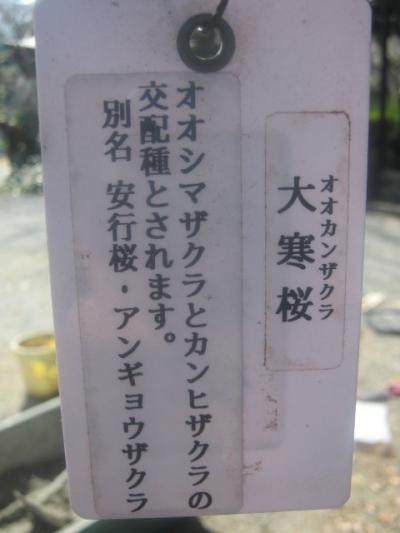 オオカンザクラ
大寒桜
オオシマザクラとカンヒザクラの
交配種とされます。
別名 安行桜・アンギョウザクラ